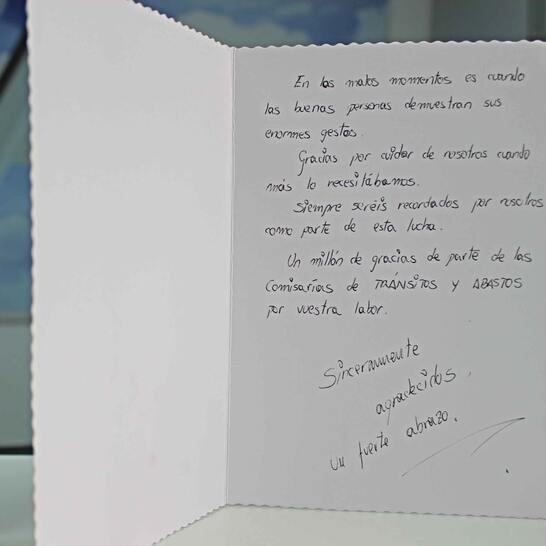 En los malos momentos es cuando
las buenas personas demuestran sus
enormes gestos.
Gracias por cuidar de nosotros cuando
más lo necesitábamos.
Siempre seréis recordados por nosotros
como parte de esta lucha.
Un millón de gracias de parte de las
Comisarías de TRÁNSITOS y ABASTOS
por vuestra labor.
Sinceramente
agradecidos,
un fuerte abrazo.